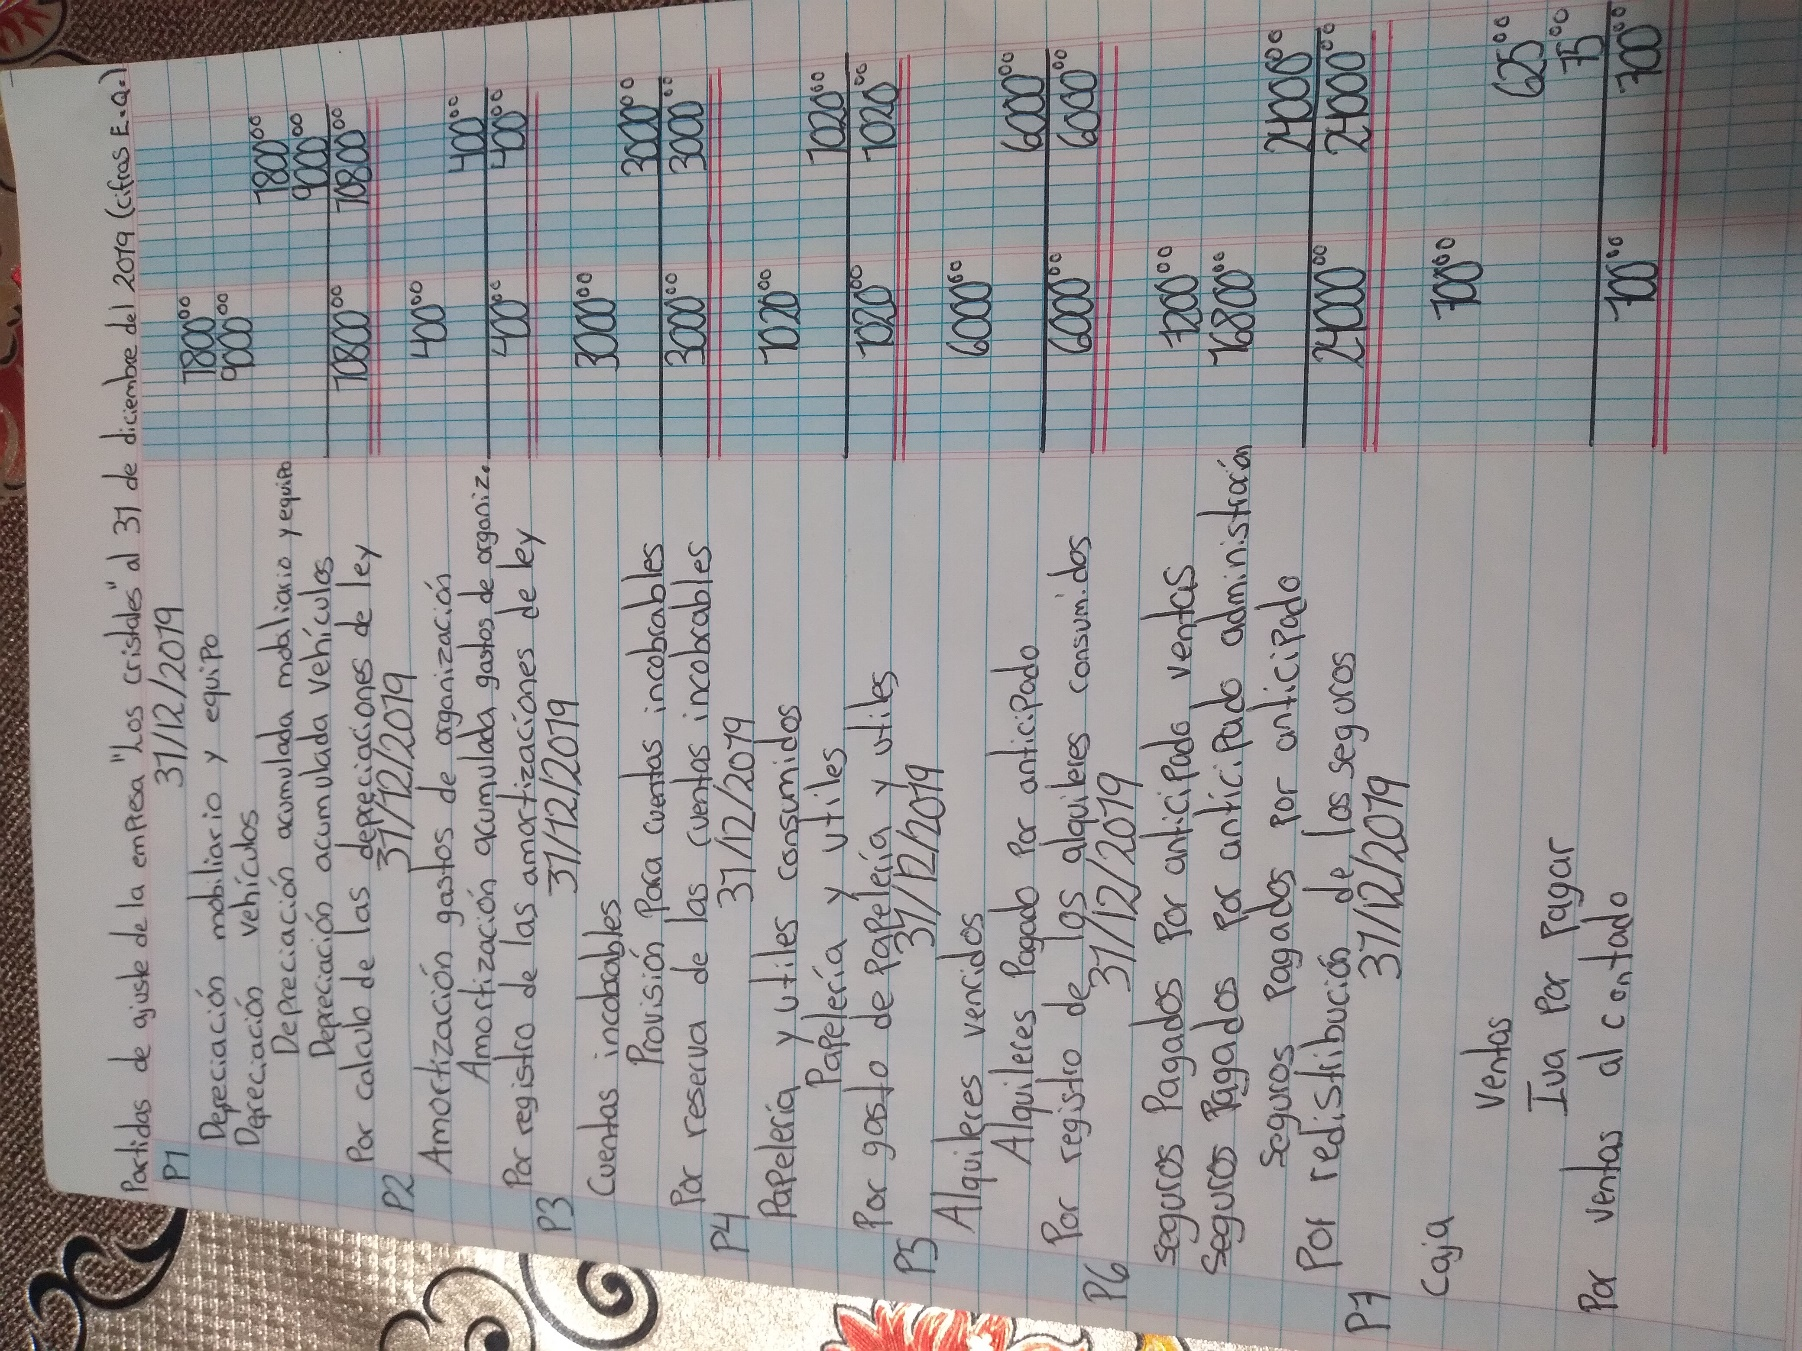 Partidas de ajuste de la empresa "Los cristales" al 31 de diciembre del 2019 (cifras E.Q.)
P1 31/12/2019
Depreciación mobiliario y equipo 1800.00
Depreciación vehículos 9000.00
Depreciación acumulada mobiliario y equipo 1800.00
Depreciación acumulada vehículos 9000.00
Por calculo de las depreciaciones de ley 10800.00 10800.00
P2 31/12/2019
Amortización gastos de organización 400.00
Amortización acumulada gastos de organiz. 400.00
Por registro de las amortizaciones de ley 400.00 400.00
P3 31/12/2019
Cuentas incobrables 3000.00
Provisión Para cuentas incobrables 3000.00
Por reserva de las cuentas incobrables 3000.00 3000.00
P4 31/12/2019
Papelería y utiles consumidos 1020.00
Papelería y utiles 1020.00
Por gasto de Papelería y utiles 1020.00 1020.00
P5 31/12/2019
Alquileres vencidos 6000.00
Alquileres Pagado Por anticipado 6000.00
Por registro de los alquileres consumidos 6000.00 6000.00
P6 31/12/2019
Seguros Pagados Por anticipado ventas 7200.00
Seguros Pagados Por anticipado administración 16800.00
Seguros Pagados Por anticipado 24000.00
Por redistribución de los seguros 24000.00 24000.00
P7 31/12/2019
Caja 700.00
Ventas 625.00
Iva Por Pagar 75.00
Por ventas al contado 700.00 700.00